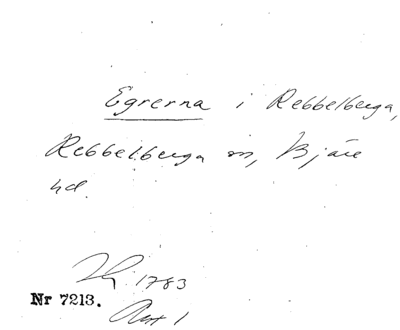 Egrerna i Rebbelberga,
Rebbelberga sn, Bjäre
hd.
1783
Nr 7213.
Akt 1